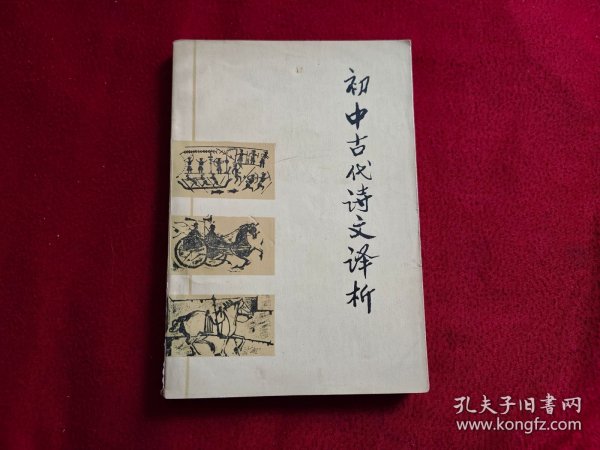 初中古代诗文译析
孔夫子旧書网
www.kongfz.com